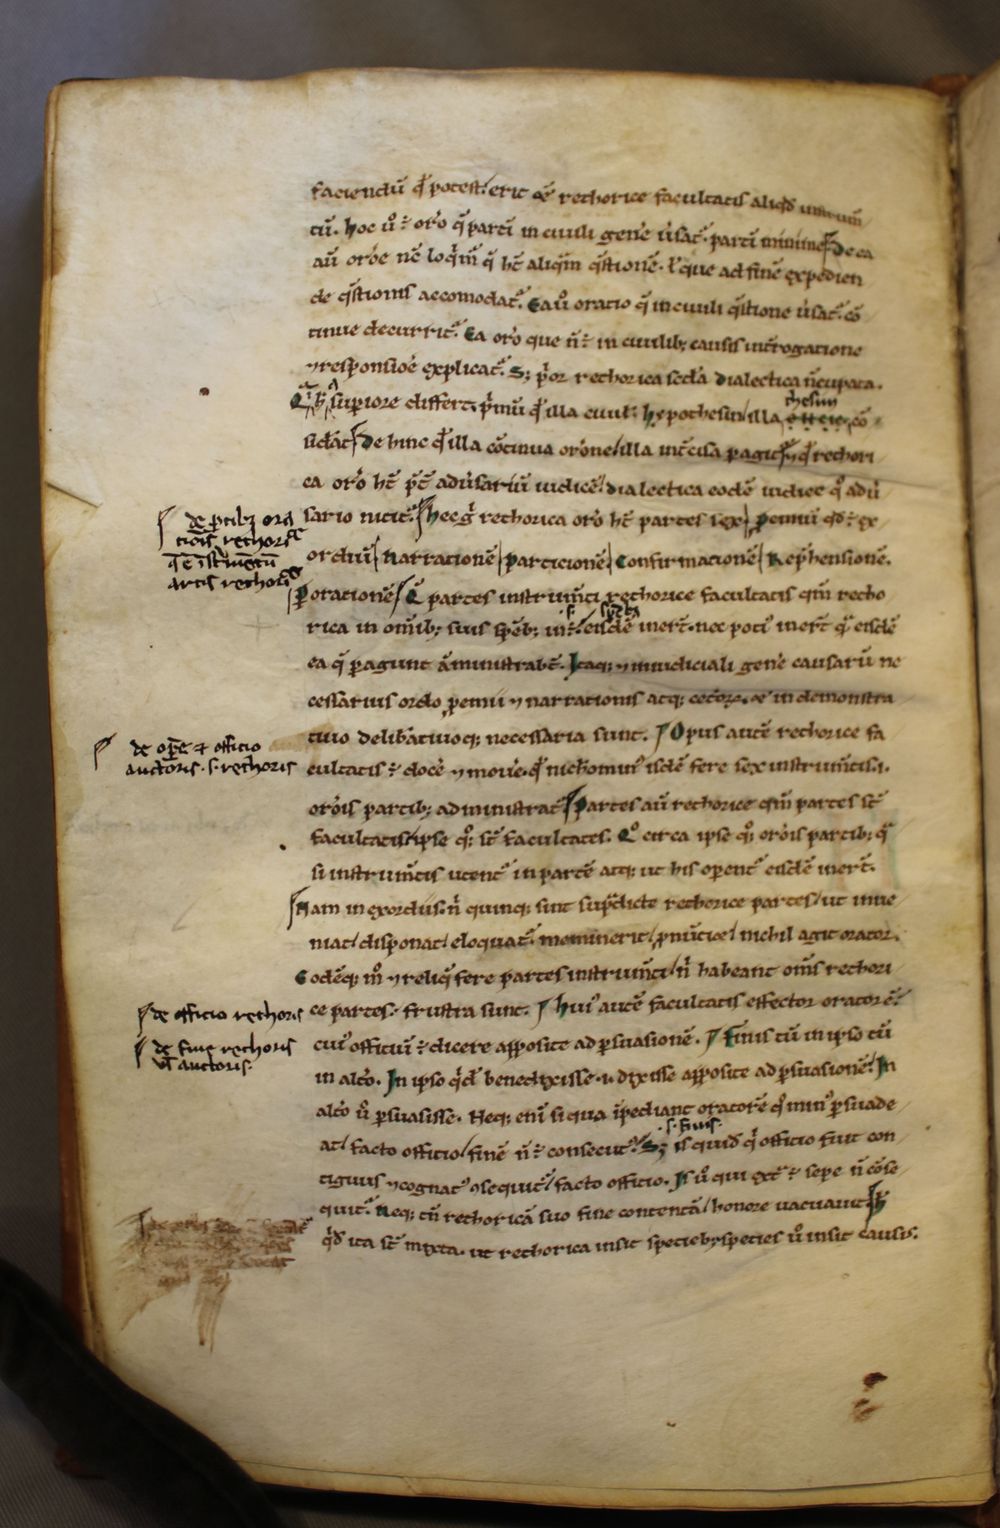 faciendū qđ potest. erit oē rethorice facultatis aliqđ
tū. hoc ů ÷ orō q̄ partī in ciuili geñe ů̓sat᷑. partī minime. De ea
aū orōe nē loq̄m̄ q̄ hēt aliq̄m q̄stionē. ł que ad finē expedien
de q̄stionis accomodat᷑. Ea ů oratio q̄ in ciuili q̄stione ů̓sat᷑. cō
tinue decurrit᷑. Ea orō que ñ ÷ in ciuilib; causis int̓rogatione
⁊ responsiōe explicat᷑. S; p̓or rethorica sec̄da dialectica nūcupata.
superiore differt. p̓mū qđ illa ciuił hypothesin / illa thesim cō
sid̓at. De hinc qđ illa cōtinua orōne / illa int̓cisa pagit᷑. ⁊ qđ rethori
ca orō hēt p̄t̄ adů̓sariū iudicē. dialectica eodē iudice q° adů̓
sario nitit᷑. Hec g̓ rethorica orō hēt partes sex ꝓemiū qđ ÷ ex
ordiū Narrationē Particionē Confirmacionē Rep̓hensionē.
Ꝑorationē Q̄ partes instrum̄ti rethorice facultatis qm̄ retho
rica in om̄ib; suis sp̄eb; in÷. eisdē inert̄. nec poti᷒ inert̄ q̄ eisdē
ea q̄ ꝑagunt āministrabt̄. Itaq; ⁊ in iudiciali geñe causarū ne
cessarius ordo ꝓemii ⁊ narrationis atq; ceťorꝝ. ⁊ in demonstra
tiuo delib̓atiuoq; necessaria sunt. Opus autē rethorice fa
cultatis ÷ docē ⁊ mouē. qđ nichomin᷒ isdē fere sex instrum̄tis .i.
orōis partib; administrat᷑ Partes aū rethorice qm̄ partes st̄
facultatis / ipse q°; st̄ facultates. Q° circa ipse q°; orōis partib; q̄
si instrum̄tis utent᷑ in partē atq; ut his operent᷑ eisdē inert̄.
Nam in exordiis. ñ quinq; sint sup̓dicte rethorice partes / ut inue
niat / disponat / eloquat᷑. meminerit / ꝓnūtiet / nichil agit orator.
Eodēq; m° ⁊ reliq̄ fere partes instrum̄ti / ñ habeant om̄s rethori
ce partes. frustra sunt. Hui᷒ autē facultatis effector orator ē.
cui᷒ officiū ÷ dicere apposite ad ꝑsuasionē. Finis tū in ipso tū
in alťo. In ipso q̓d̄ benedixisse .i. dixisse apposite ad ꝑsuasionē. In
alťo ů ꝑsuasisse. Neq; eni si qua īpediant oratorē q° min᷒ ꝑsuade
at / facto officio / finē ñ ÷ consecut᷒. S; is quid q̓ officio fuit con
tiguus ⁊ cognat᷒ ꝯsequit᷑ / facto officio. Is ů qui ext̓ ÷ sepe ñ cōse
quit᷑. Neq; tñ rethoricā suo fine contentā / honore uacuauit
q̓d ita st̄ mixta. ut rethorica insit speciebꝫ species ů insit causis.
thesim
.s. finis.
de ꝑtibꝫ ora
tiōis rethor
q̄ ē īstrumētū
artis rethor
de oꝑe ⁊ officio
auctoris .s. rethoris
de officio rethoris
de fine rethoris
ł auctoris.